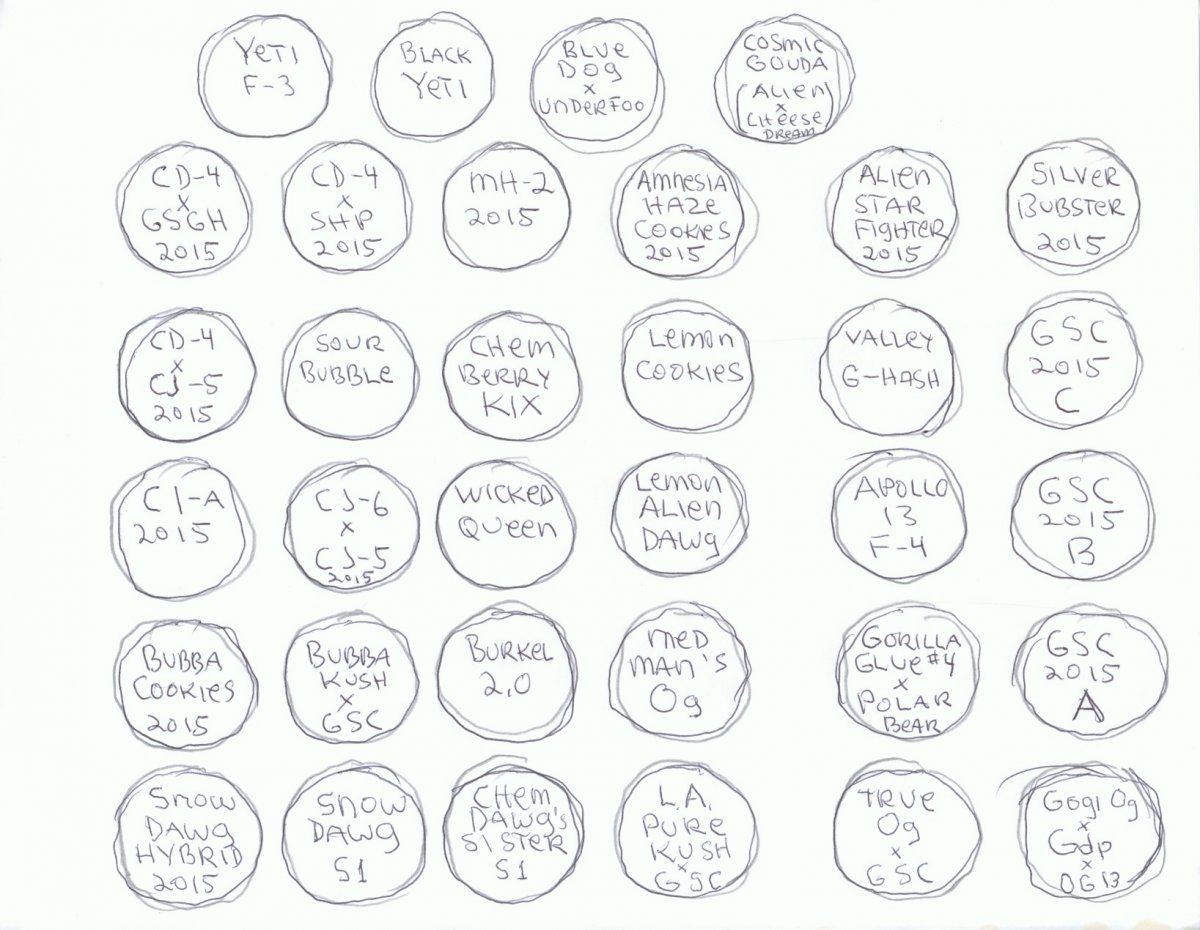 YETI
F-3
BLACK
YETI
BLUE
DOG
x
UNDERFOO
COSMIC
GOUDA
(ALIEN
x
CHEESE
DREAM)
CD-4
x
GSGH
2015
CD-4
x
SHP
2015
MH-2
2015
AMNESIA
HAZE
COOKIES
2015
ALIEN
STAR
FIGHTER
2015
SILVER
BUBSTER
2015
CD-4
x
CJ-5
2015
SOUR
BUBBLE
CHEM
BERRY
KIX
LEMON
COOKIES
VALLEY
G-HASH
GSC
2015
C
C1-A
2015
CJ-6
x
CJ-5
2015
WICKED
QUEEN
LEMON
ALIEN
DAWG
APOLLO
13
F-4
GSC
2015
B
BUBBA
COOKIES
2015
BUBBA
KUSH
x
GSC
BURKEL
2.0
MED
MAN'S
Og
GORILLA
GLUE #4
x
POLAR
BEAR
GSC
2015
A
SNOW
DAWG
HYBRID
2015
SNOW
DAWG
S1
CHEM
DAWG'S
SISTER
S1
L.A.
PURE
KUSH
x
GSC
TRUE
Og
x
GSC
GOGI Og
x
Gdp
x
OG 13